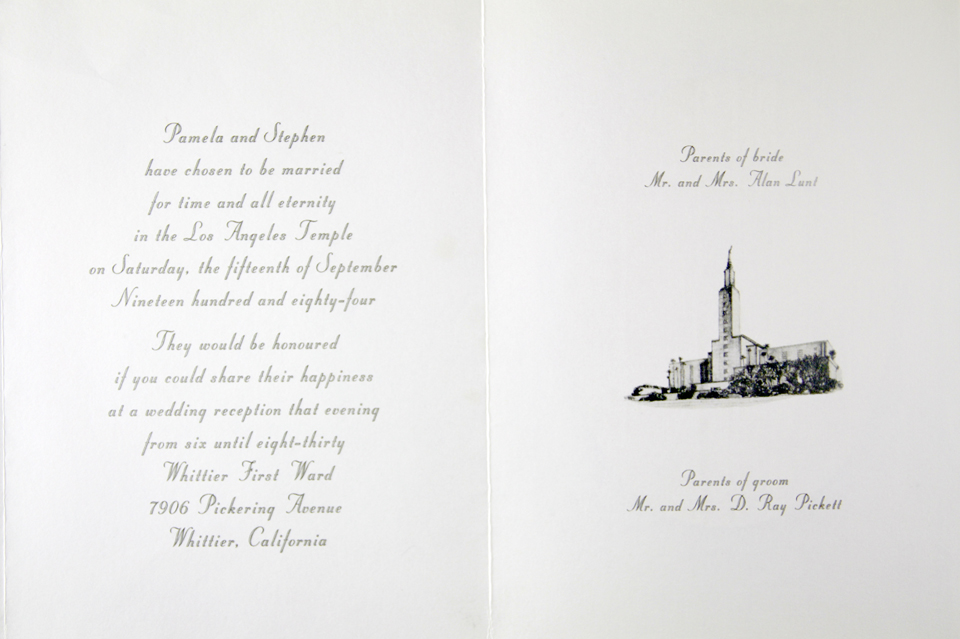 Pamela and Stephen
have chosen to be married
for time and all eternity
in the Los Angeles Temple
on Saturday, the fifteenth of September
Nineteen hundred and eighty-four
They would be honoured
if you could share their happiness
at a wedding reception that evening
from six until eight-thirty
Whittier First Ward
7906 Pickering Avenue
Whittier, California
Parents of bride
Mr. and Mrs. Alan Lunt
Parents of groom
Mr. and Mrs. D. Ray Pickett